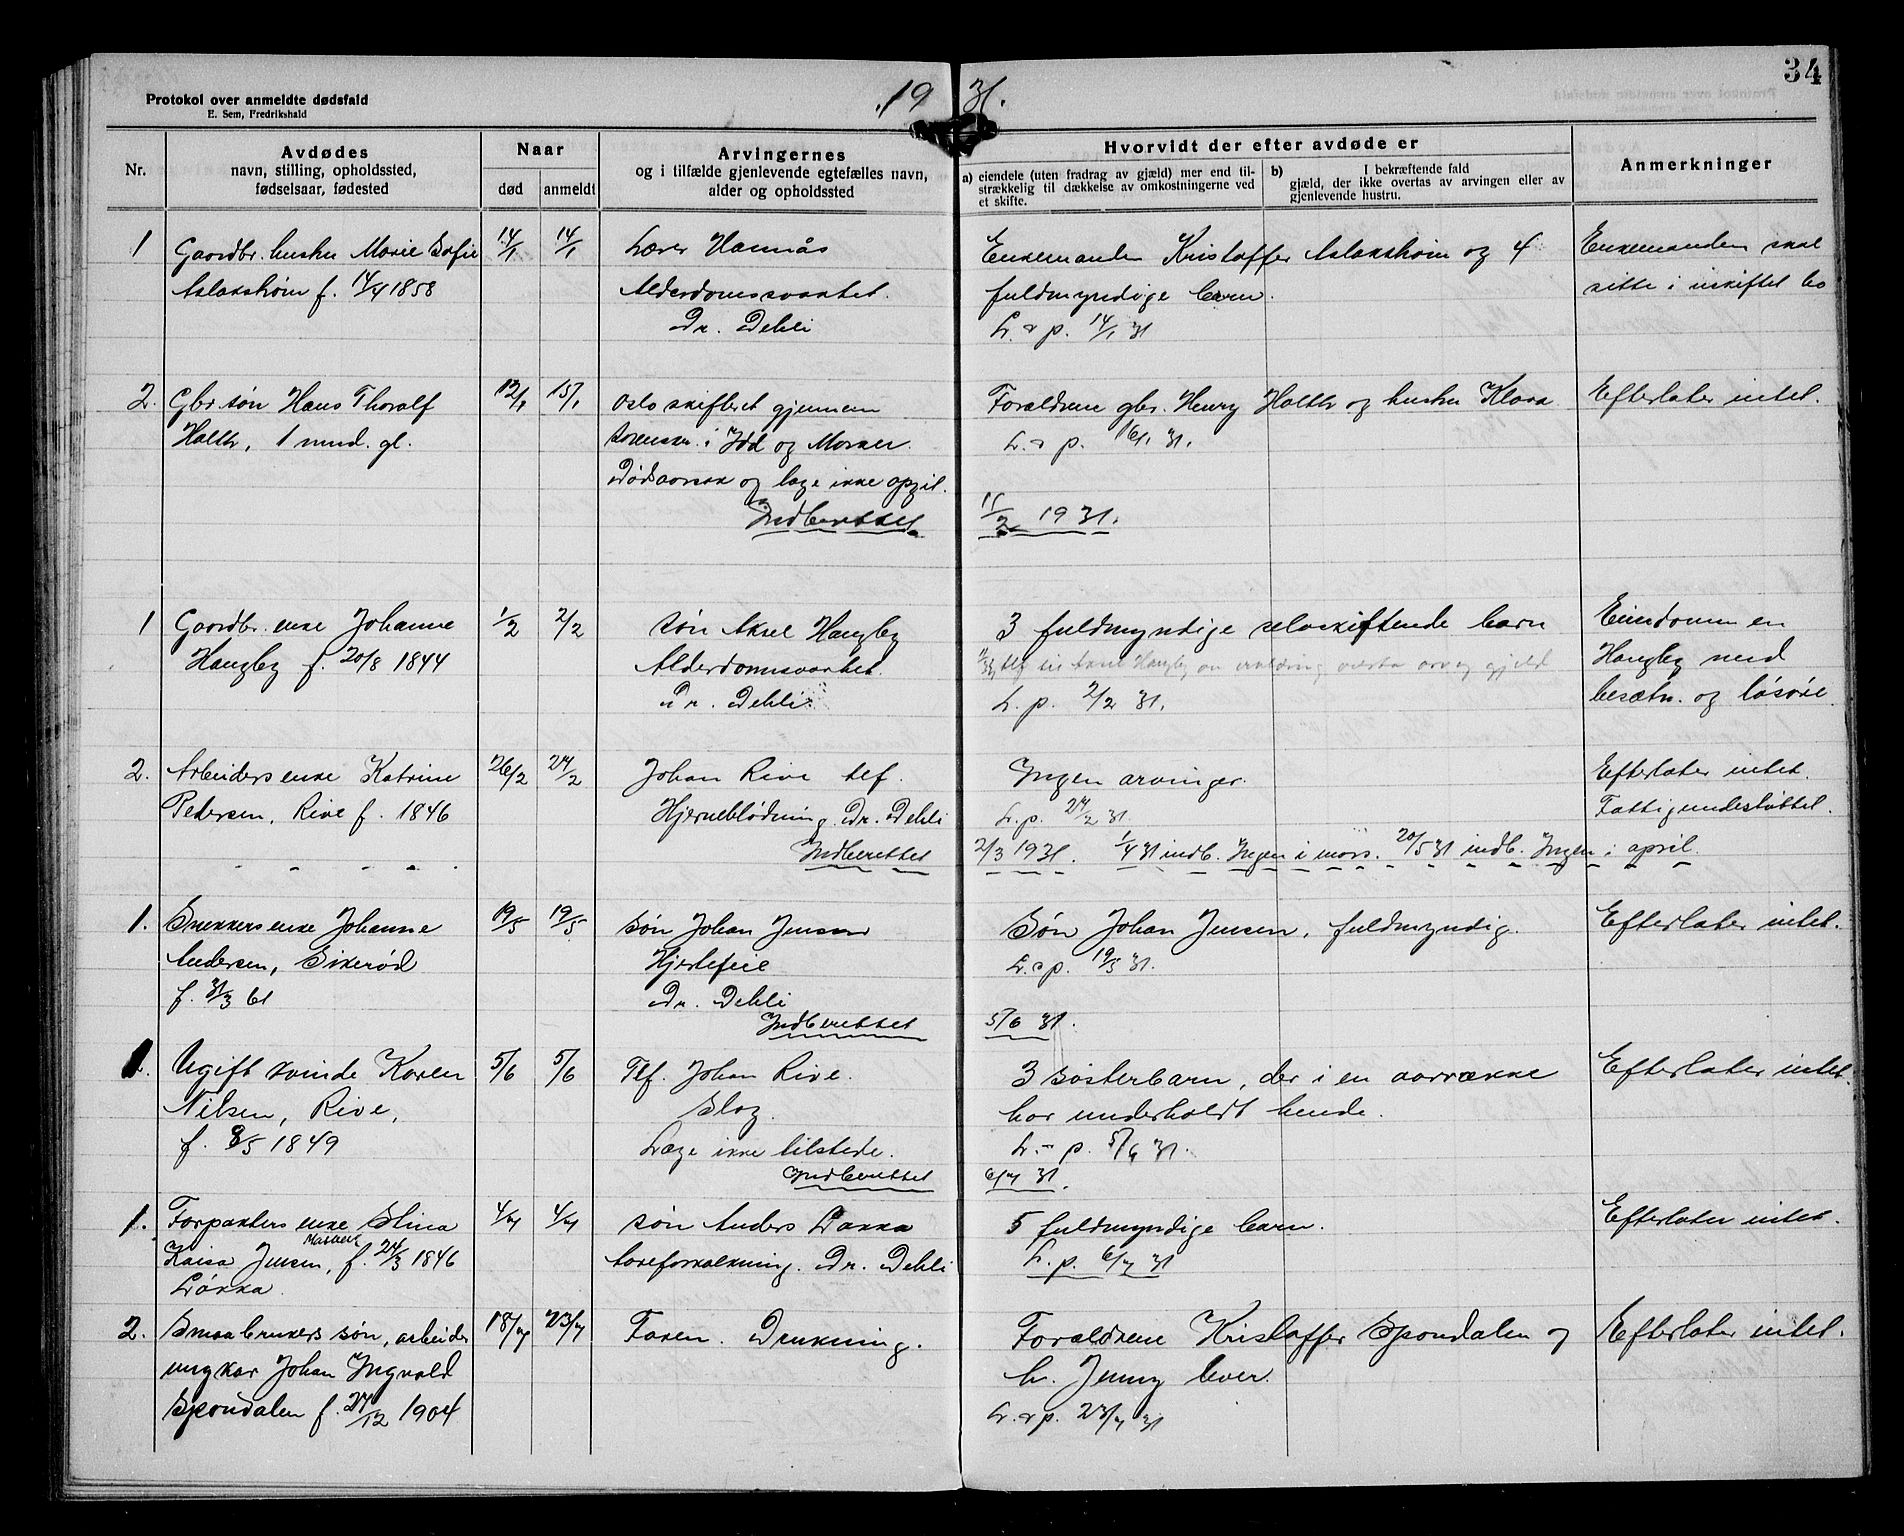 34
Protokol over anmeldte dødsfald
E. Sem, Fredrikshald
19 31.
Nr.
Avdødes
navn, stilling, opholdssted,
fødselsaar, fødested
Naar
død
anmeldt
Arvingernes
og i tilfælde gjenlevende egtefælles navn,
alder og opholdssted
Hvorvidt der efter avdøde er
a) eiendele (uten fradrag av gjæld) mer end til-
strækkelig til dækkelse av omkostningerne ved
et skifte.
b) I bekræftende fald
gjæld, der ikke overtas av arvingen eller av
gjenlevende hustru.
Anmerkninger
1 Gaardbr. hustru Marie Sofie 14/1 14/1 Lærer Hannås Enkemanden Kristoffer Aslakstrøm og 4 Enkemanden skal
Aslakstrøm f. 14/4 1858 Alderdomssvakhet. fuldmyndige barn. sitte i uskiftet bo
Dr. Dehli L. & p. 14/1 31
2. Gbr. søn Hans Thoralf 12/1 15/1 Oslo skifteret gjennem Forældrene gbr. Henry Holth og hustru Klara Efterlater intet.
Holth, 1 mnd. gl. sorenskr. i Idd og Marker. L. & p. 16/1 31.
Dødsaarsak og læge ikke opgit.
Indberettet 11/2 1931.
1 Gaardbr. enke Johanne 1/2 2/2 søn Aksel Haugby 3 fuldmyndige selvskiftende barn Eiendommen
Haugby f. 20/8 1844 Alderdomssvakhet. Aksel Haugby overta arv og gjeld Haugby med
Dr. Dehli L. p. 2/2 31. besætn. og løsøre.
2. Arbeiders enke Katrine 26/2 27/2 Johan Rive tlf. Ingen arvinger. Efterlater intet.
Pedersen, Rive f. 1846 Hjerneblødning. Dr. Dehli L. p. 27/2 31. Fattigunderstøttet.
Indberettet 2/3 1931. 1/4 31 indb. Ingen i mars. 20/5 31 indb. Ingen i april.
1. Snekkers enke Johanne 19/5 19/5 søn Johan Jensen Søn Johan Jensen, fuldmyndig. Efterlater intet.
Andersen, Sikerød Hjertefeil L. & p. 19/5 31.
f. 31/3 61 Dr. Dehli
Indberettet 5/6 31.
1. Ugift kvinde Karen 5/6 5/6 Tlf. Johan Rive. 3 søsterbarn, der i en aarrække Efterlater intet.
Nilsen, Rive, Slag. har underholdt hende.
f. 8/5 1849 Læge ikke tilstede. L. & p. 5/6 31.
Indberettet 6/7 31.
1. Forpakters enke Stina 4/7 4/7 søn Anders Løkka 5 fuldmyndige barn. Efterlater intet.
Kaisa Jensen, f. 24/3 1846 Aareforkalkning. Dr. Dehli L. p. 6/7 31
Løkka.
2. Smaabrukers søn, arbeider 18/7 23/7 Faren. Drukning. Forældrene Kristoffer Spondalen og Efterlater intet.
ungkar Johan Ingvald h. Jenny lever.
Spondalen f. 27/12 1904 L. & p. 23/7 31